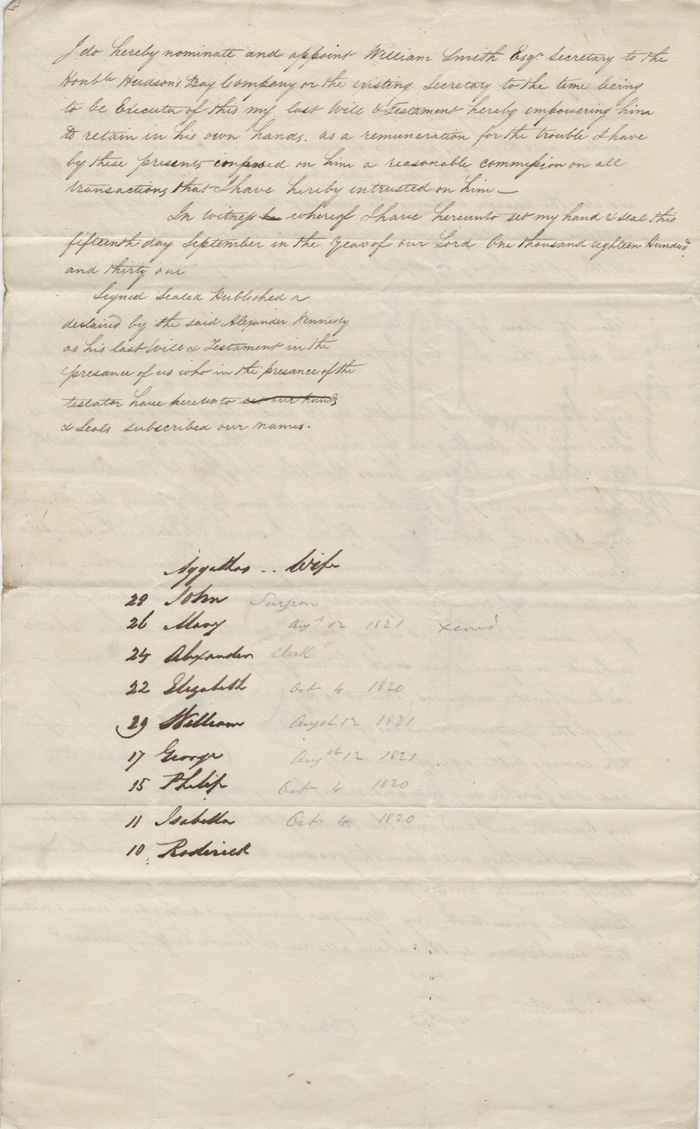 I do hereby nominate and appoint William Smith Esqr Secretary to the
Honble Hudson's Bay Company or the existing Secretary to the time being
to be Executor of this my last Will & Testament hereby empowering him
to retain in his own hands, as a remuneration for the trouble I have
by these presents imposed on him a reasonable commission on all
transactions that I have hereby intrusted on him —
In witness whereof I have hereunto set my hand & seal this
fifteenth day September in the Year of our Lord One thousand eighteen Hundred
and thirty one
Signed Sealed Published &
declaired by the said Alexander Kennedy
as his last Will & Testament in the
presance of us who in the presance of the
testator have hereunto set our hands
& Seals subscribed our names.
Aggathas .. Wife
28 John Surgeon
26 Mary Augst 12 1821
24 Alexander Clerk
22 Elizabeth Oct 4 1820
29 William Augst 12 1821
17 George Augst 12 1821
15 Philip Oct 4 1820
11 Isabella Oct 4 1820
10 Roderick